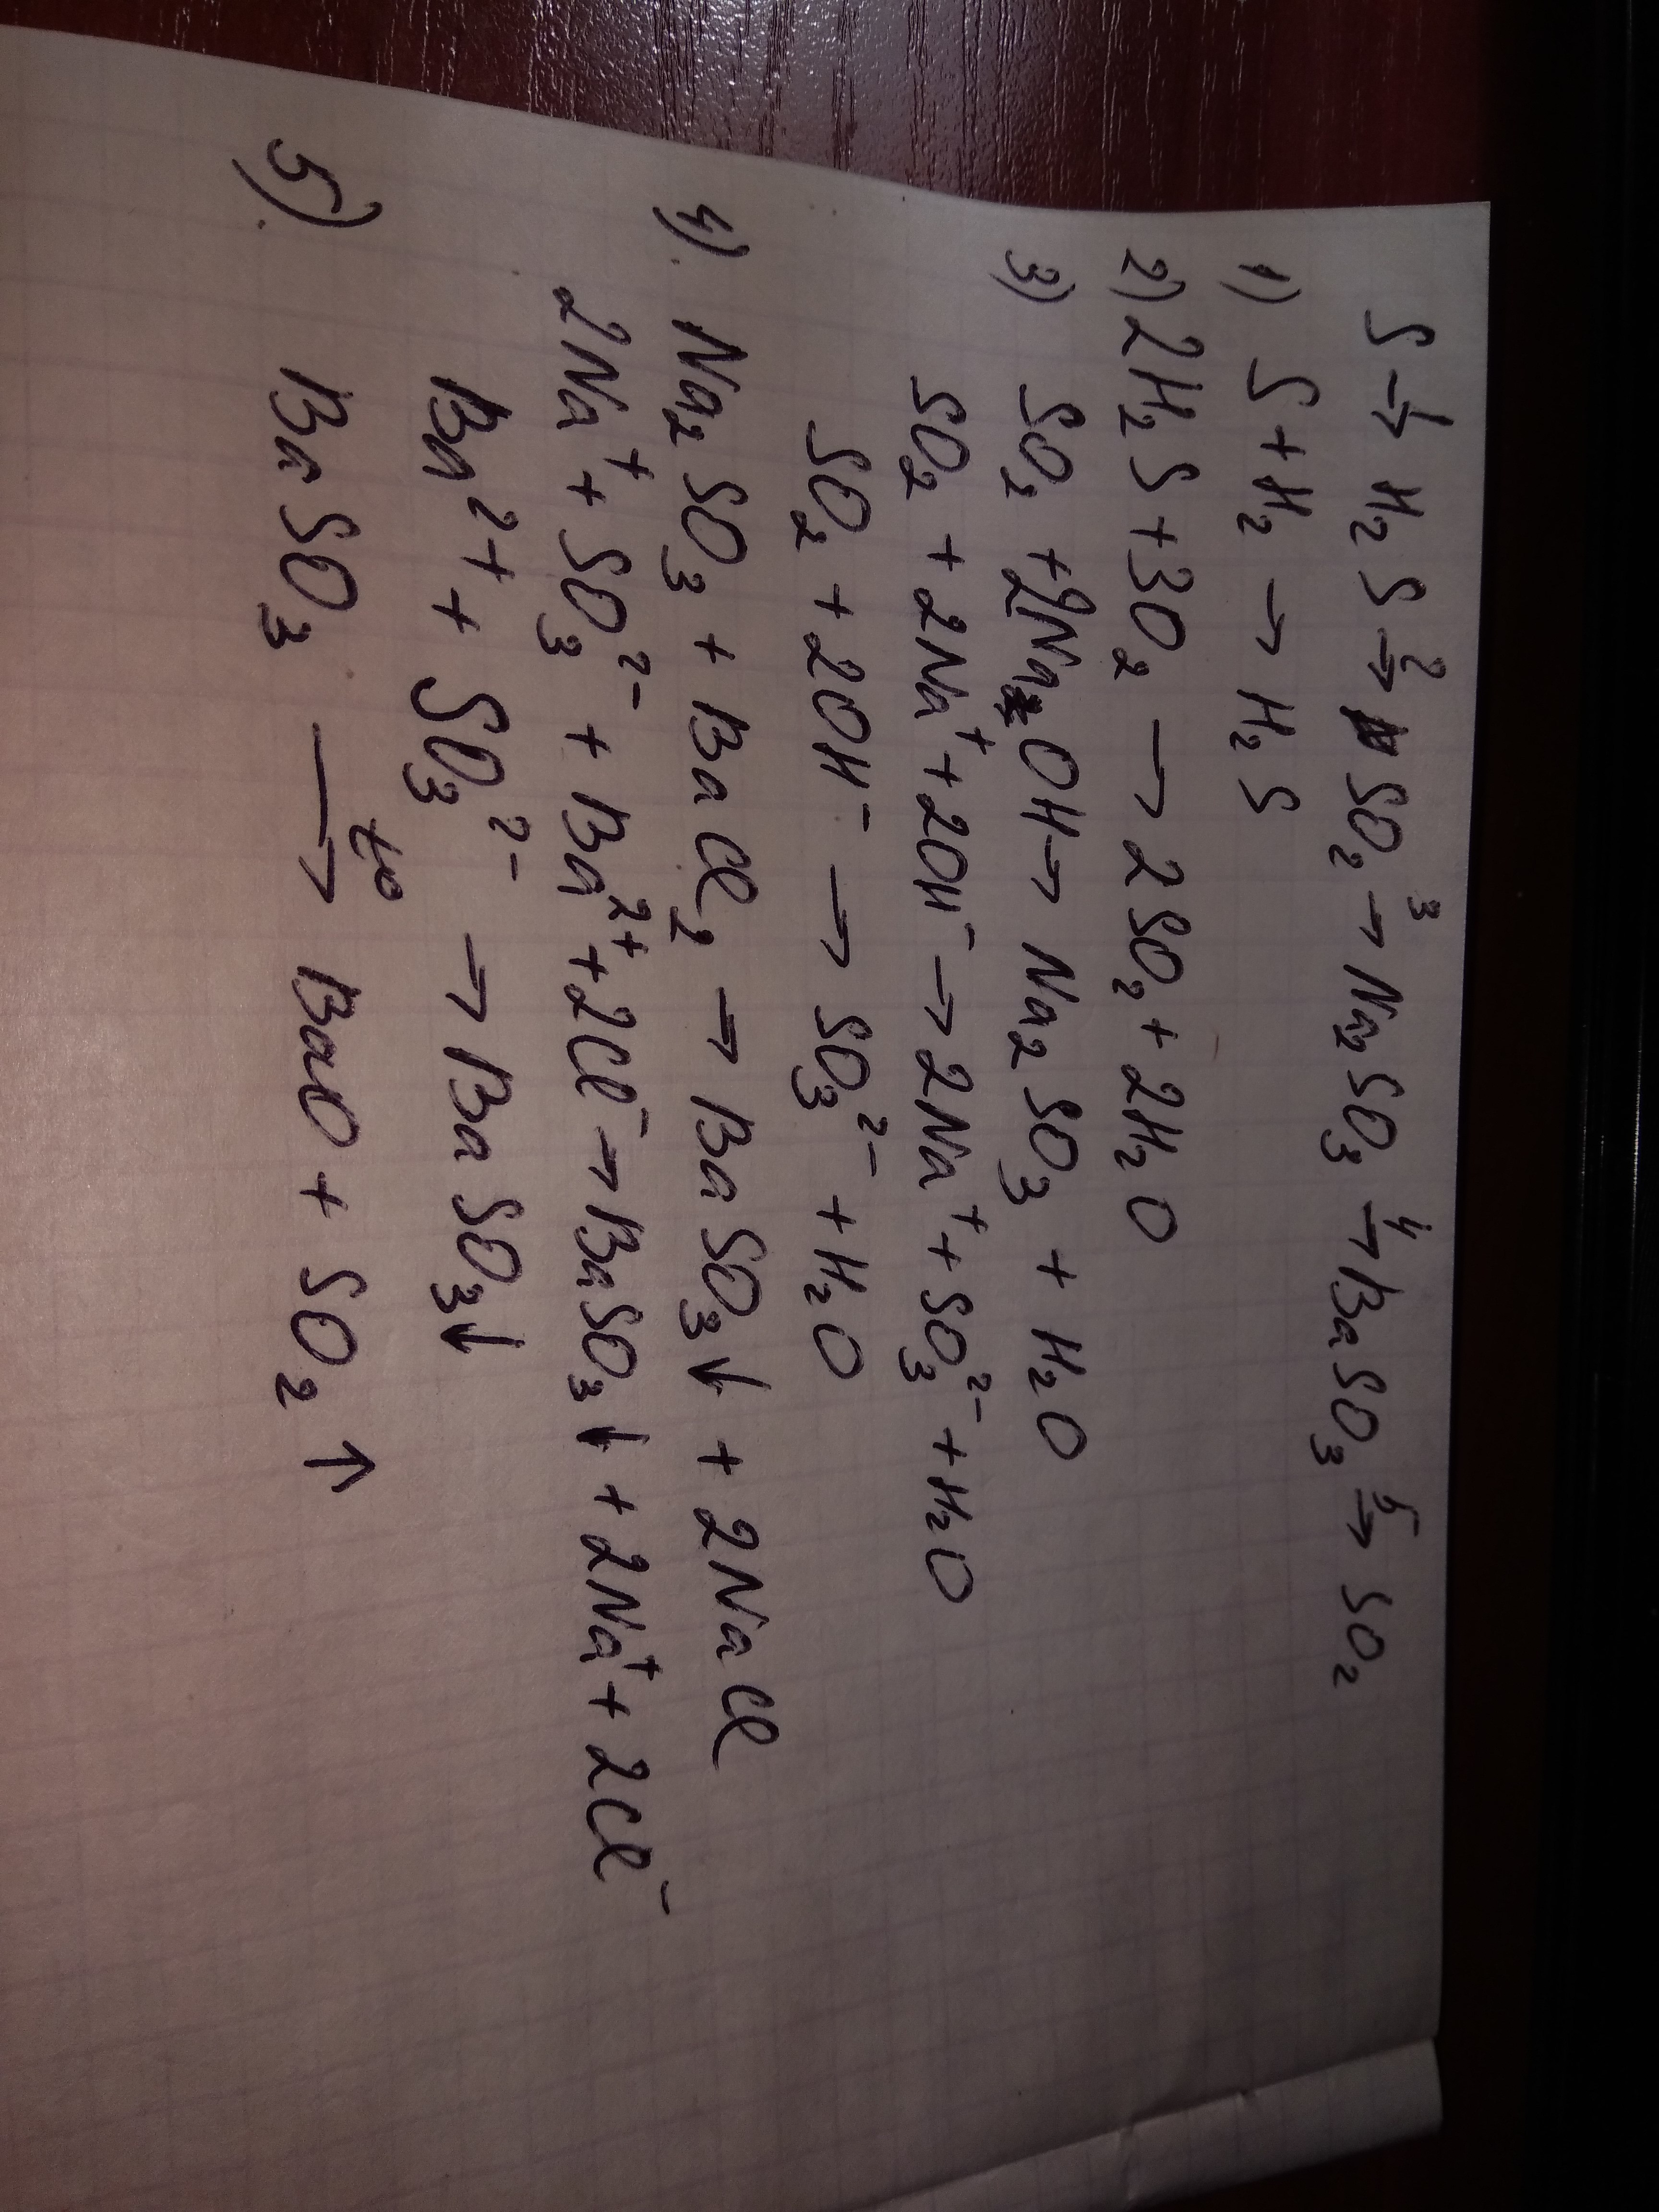 S →¹ H₂S →² SO₂ →³ Na₂SO₃ →⁴ BaSO₃ →⁵ SO₂
1) S + H₂ → H₂S
2) 2H₂S + 3O₂ → 2SO₂ + 2H₂O
3) SO₂ + 2NaOH → Na₂SO₃ + H₂O
SO₂ + 2Na⁺ + 2OH⁻ → 2Na⁺ + SO₃²⁻ + H₂O
SO₂ + 2OH⁻ → SO₃²⁻ + H₂O
4) Na₂SO₃ + BaCl₂ → BaSO₃↓ + 2NaCl
2Na⁺ + SO₃²⁻ + Ba²⁺ + 2Cl⁻ → BaSO₃↓ + 2Na⁺ + 2Cl⁻
Ba²⁺ + SO₃²⁻ → BaSO₃↓
5) BaSO₃ →ᵗ° BaO + SO₂↑